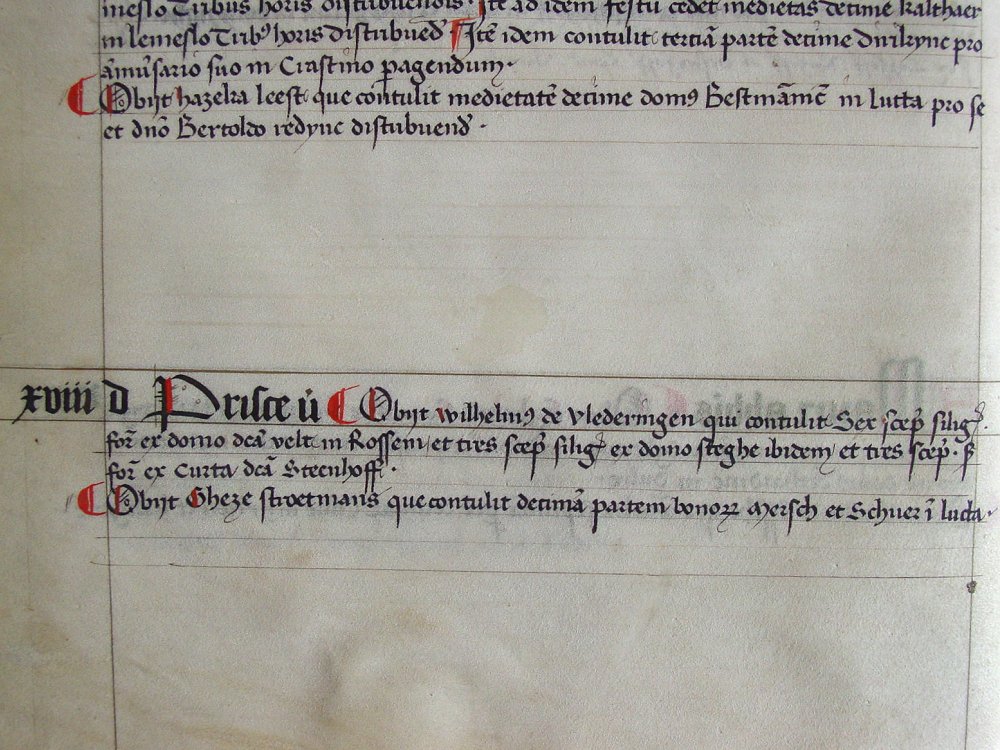 meslo Tribus horis distribuendis · Ite ad idem festū cedet medietas decime kalthaer
in lemeslo Trib9 horis distribued Itē idem contulit terciā partē decime dni kync pro
āniu̾sario suo in Crastino pagendum ·
Obijt hazeka leest que contulit medietatē decime dom9 Bestmāinc in lutta pro se
et dnō Bertoldo redync distribuend ·
xviii d Prisce ū Obijt wilhelm9 de vlederingen qui contulit Sex scep silig
for ex domo dcā velt in Rossem et tres scep silig ex domo steghe ibidem et tres scep · s
for ex Curta dcā Steenhoff ·
Obijt Gheze stroetmans que contulit decimā partem bonoꝝ mersch et Schuer ī lutta ·